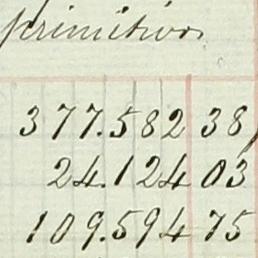 primitivos
377.582 38
24.124 03
109.594 75